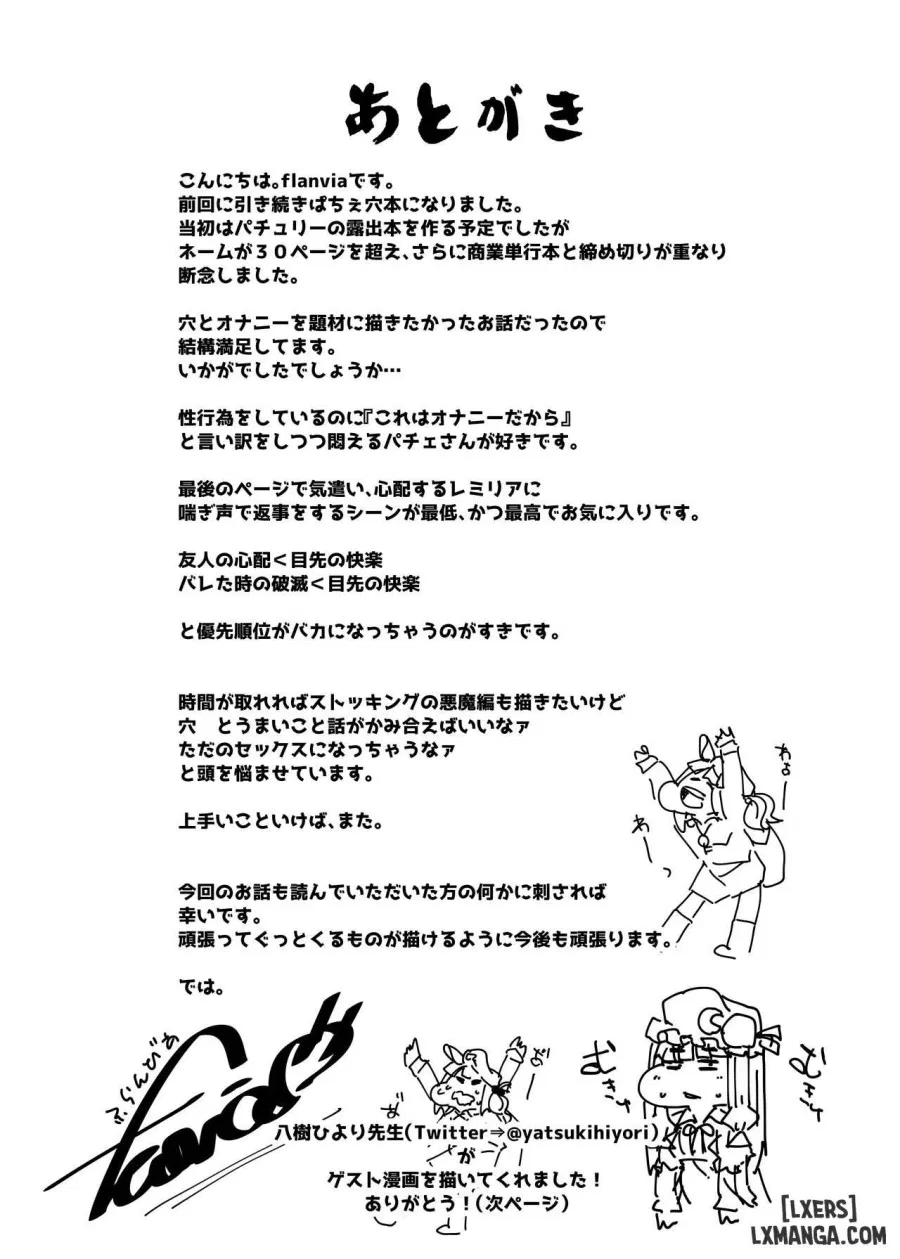 あとがき
こんにちは。flanviaです。
前回に引き続きぱちぇ穴本になりました。
当初はパチュリーの露出本を作る予定でしたが
ネームが３０ページを超え、さらに商業単行本と締め切りが重なり
断念しました。
穴とオナニーを題材に描きたかったお話だったので
結構満足してます。
いかがでしたでしょうか…
性行為をしているのに『これはオナニーだから』
と言い訳をしつつ悶えるパチェさんが好きです。
最後のページで気遣い、心配するレミリアに
喘ぎ声で返事をするシーンが最低、かつ最高でお気に入りです。
友人の心配＜目先の快楽
バレた時の破滅＜目先の快楽
と優先順位がバカになっちゃうのがすきです。
時間が取れればストッキングの悪魔編も描きたいけど
穴　とうまいこと話がかみ合えばいいなァ
ただのセックスになっちゃうなァ
と頭を悩ませています。
上手いこといけば、また。
わぁー
わーっ
今回のお話も読んでいただいた方の何かに刺されば
幸いです。
頑張ってぐっとくるものが描けるように今後も頑張ります。
では。
ふらんびあ
むきゅ
むきゅ
八樹ひより先生（Twitter⇒@yatsukihiyori）
が
ゲスト漫画を描いてくれました！
ありがとう！（次ページ）
[LXERS]
LXMANGA.COM